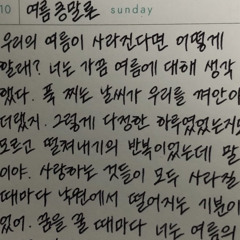 10 여름 종말론 sunday
우리의 여름이 사라진다면 어떻게
할래? 너는 가끔 여름에 대해 생각
했다. 푹 찌는 날씨가 우리를 껴안아
더랬지. 그렇게 다정한 하루였는지도
모르고 떨쳐내기의 반복이었는데 말
이야. 사랑하는 것들이 모두 사라질
때마다 낙원에서 떨어지는 기분이
있어. 꿈을 꿀 때마다 너는 여름의